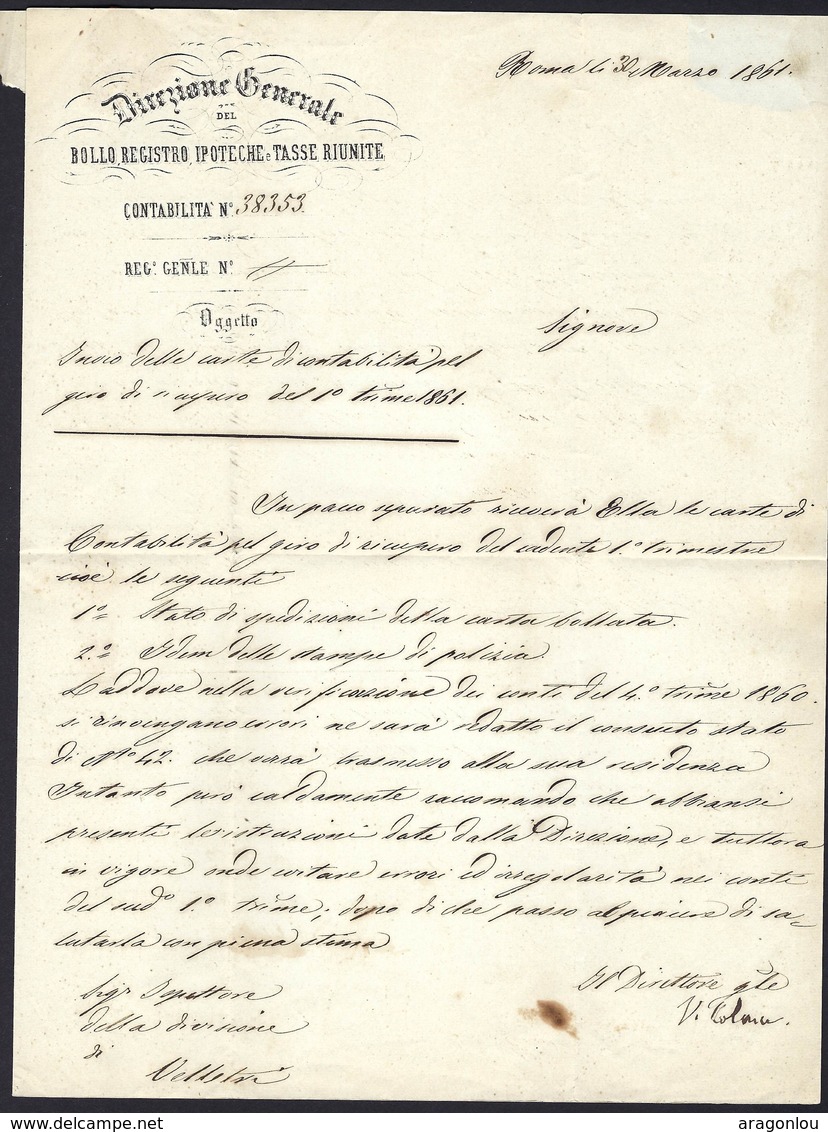 Roma li 30 Marzo 1861.
Direzione Generale
DEL
BOLLO, REGISTRO, IPOTECHE e TASSE RIUNITE
CONTABILITA' N.º 38353.
REG.º GEÑLE N.º
Oggetto
Signore
Invio delle carte di contabilità pel
giro di ricupero del 1º trim̃e 1861.
In pacco separato riceverà Ella le carte di
Contabilità pel giro di ricupero del cadente 1.º trimestre
cioè le seguenti
1º Stato di spedizioni della carta bollata.
2.º Idem delle stampe di polizia.
Laddove nella verificazione dei conti del 4.º trim̃e 1860.
si rinvengano errori ne sarà redatto il consueto stato
di Nº 42. che verrà trasmesso alla sua residenza
Intanto però caldamente raccomando che abbiansi
presenti le istruzioni date dalla Direzione, e tuttora
in vigore onde evitare errori ed irregolarità nei conti
del sudº 1.º trim̃e; dopo di che passo al piacere di sa=
lutarla con piena stima
Il Direttore gl̃e
V.
Sigr Ispettore
della divisione
di
Velletri
delcampe.net
aragonlou